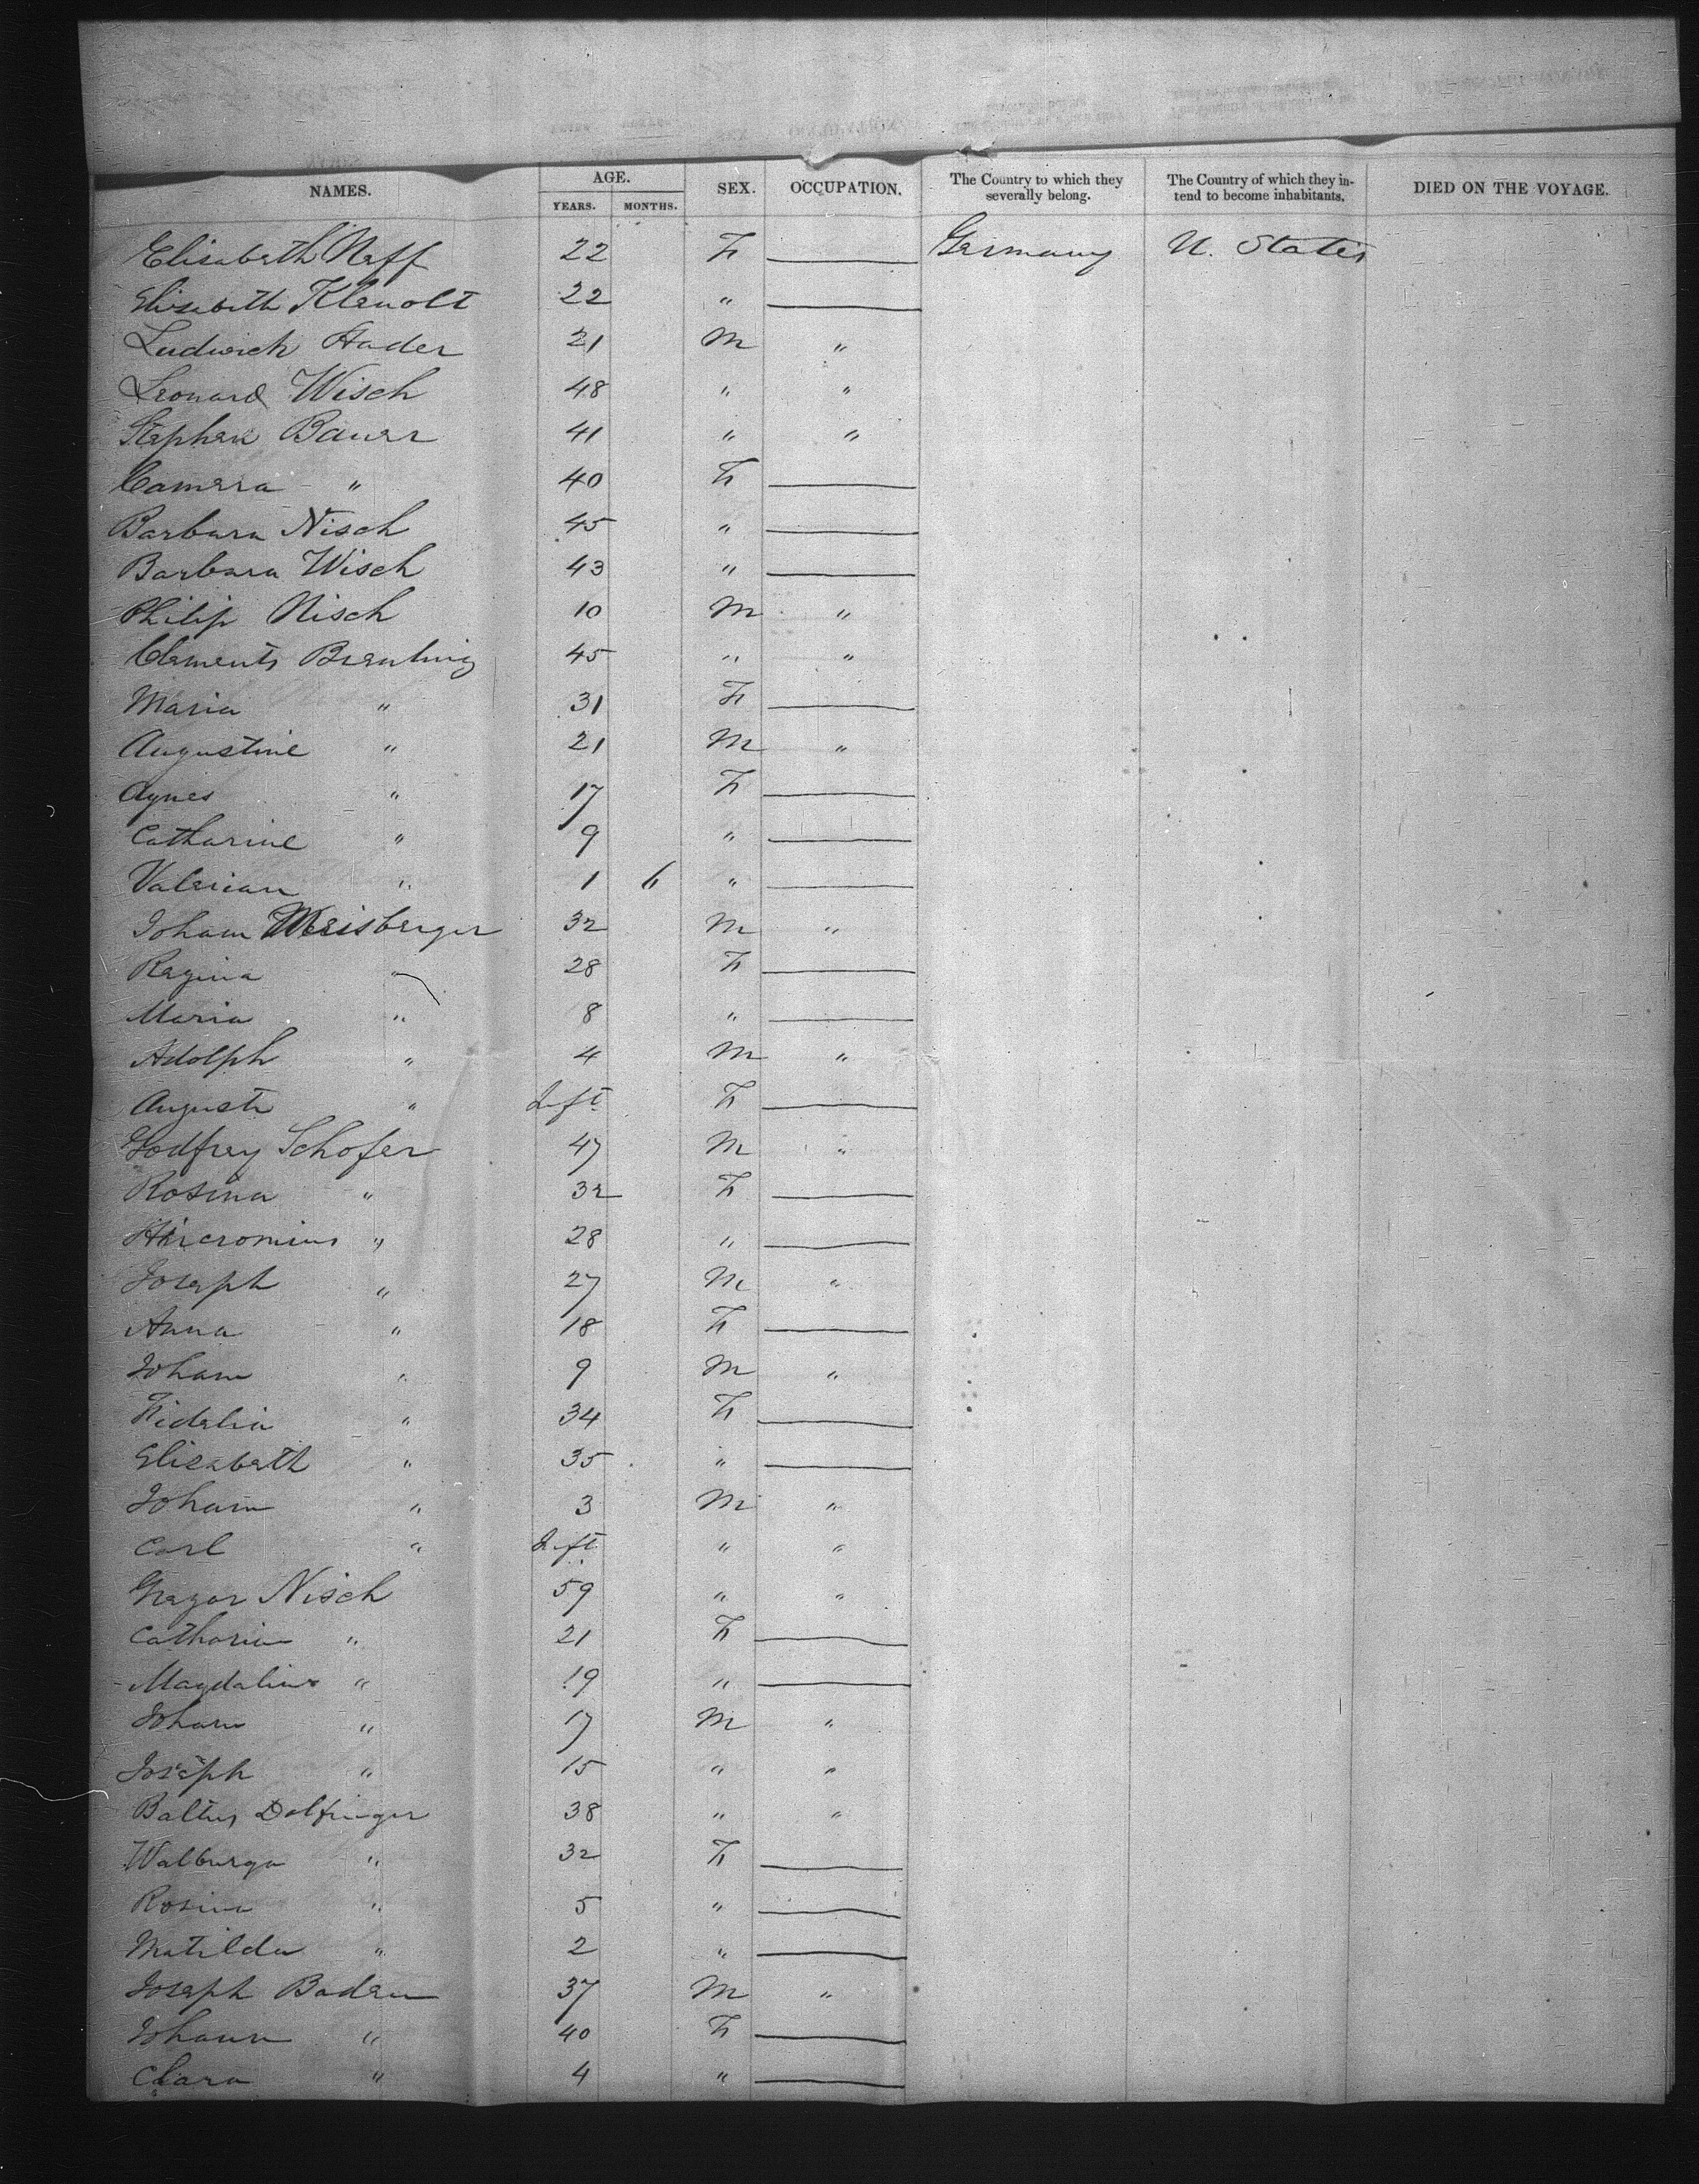 NAMES. AGE. SEX. OCCUPATION. The Country to which they severally belong. The Country of which they intend to become inhabitants. DIED ON THE VOYAGE.
YEARS. MONTHS.
Elisabeth Neff 22 F Germany U. States
Elisabeth Klenolt 22 "
Ludwich Hader 21 M "
Leonard Wisch 48 " "
Stephen Bauer 41 " "
Camera " 40 F
Barbara Nisch 45 "
Barbara Wisch 43 "
Philip Nisch 10 M "
Clements Brenling 45 " "
Maria " 31 F
Augustine " 21 M "
Agnes " 17 F
Catharine " 9 "
Valerian " 1 6 "
Joham Weisberger 32 M "
Regina " 28 F
Maria " 8 "
Adolph " 4 M "
August " Inft F
Godfrey Schofer 47 M "
Rosina " 32 F
Hiercromius " 28 "
Joseph " 27 M "
Anna " 18 F
Joham " 9 M "
Fidelia " 34 F
Elisabeth " 35 "
Joham " 3 M "
Carl " Inft " "
Gregor Nisch 59 " "
Catharin " 21 F
Magdalina " 19 "
Joham " 17 M "
Joseph " 15 " "
Baltus Dolfinger 38 " "
Walburga " 32 F
Rosina " 5 "
Matilda " 2 "
Joseph Baden 37 M "
Johann " 40 F
Clara " 4 "